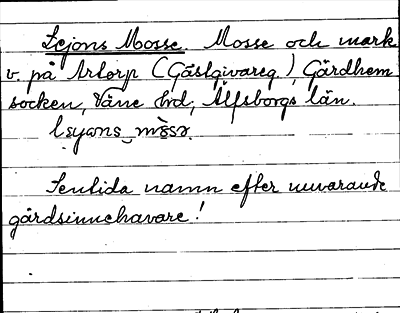 Lejons Mosse. Mosse och mark
v. på Artorp (Gästgivareg.), Gärdhem
socken, Väne hrd, Älfsborgs län.
lɛyons mòsə.
Sentida namn efter nuvarande
gårdsinnehavare!